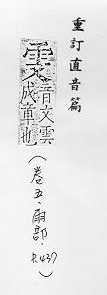 重訂直音篇
雯音文雲
成章也
(卷五·雨部·p.437)